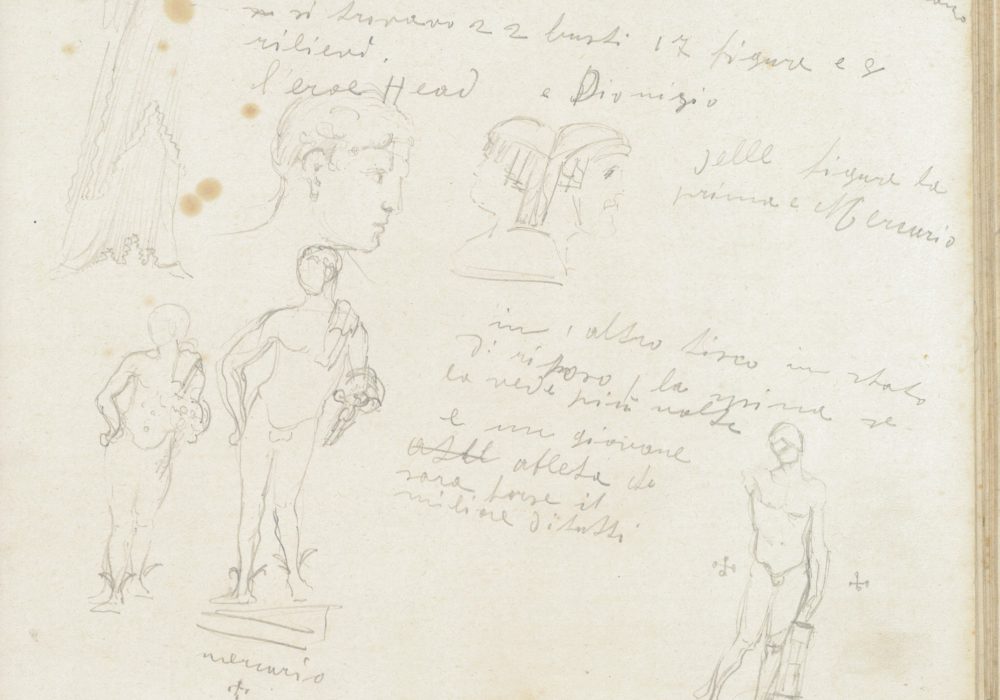 si trovavo 22 busti 17 figure e 9
rilievi.
l'eroe Head e Dionigio
delle figure la
prima e Mercurio
in altro disco in stato
di riposo, la prima se
la vede più volte
e un giovane
atleta
sara forse il
miliore di tutti
mercurio